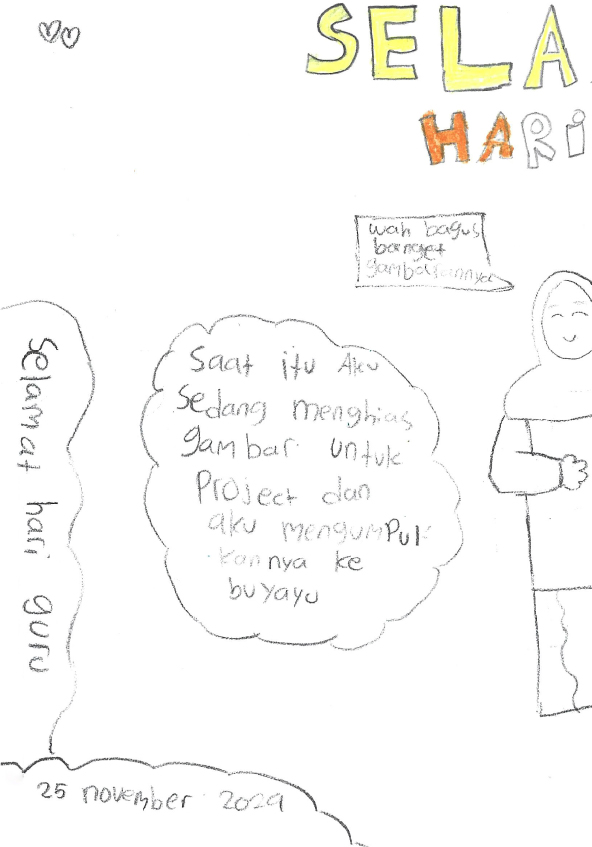 SELA
HARi
wah bagus
banget
gambarannya
Selamat hari guru
Saat itu Aku
Sedang menghias
gambar untuk
Project dan
aku mengumpul
-kannya ke
buyayu
25 november 2024